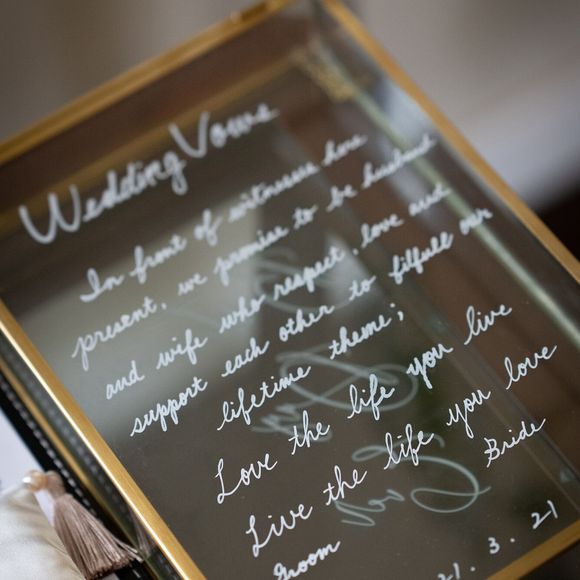 Wedding Vows
In front of witnesses here
present, we promise to be husband
and wife who respect, love and
support each other to filfull our
lifetime theme;
Love the life you live
Live the life you love
Groom
Bride
21. 3. 21